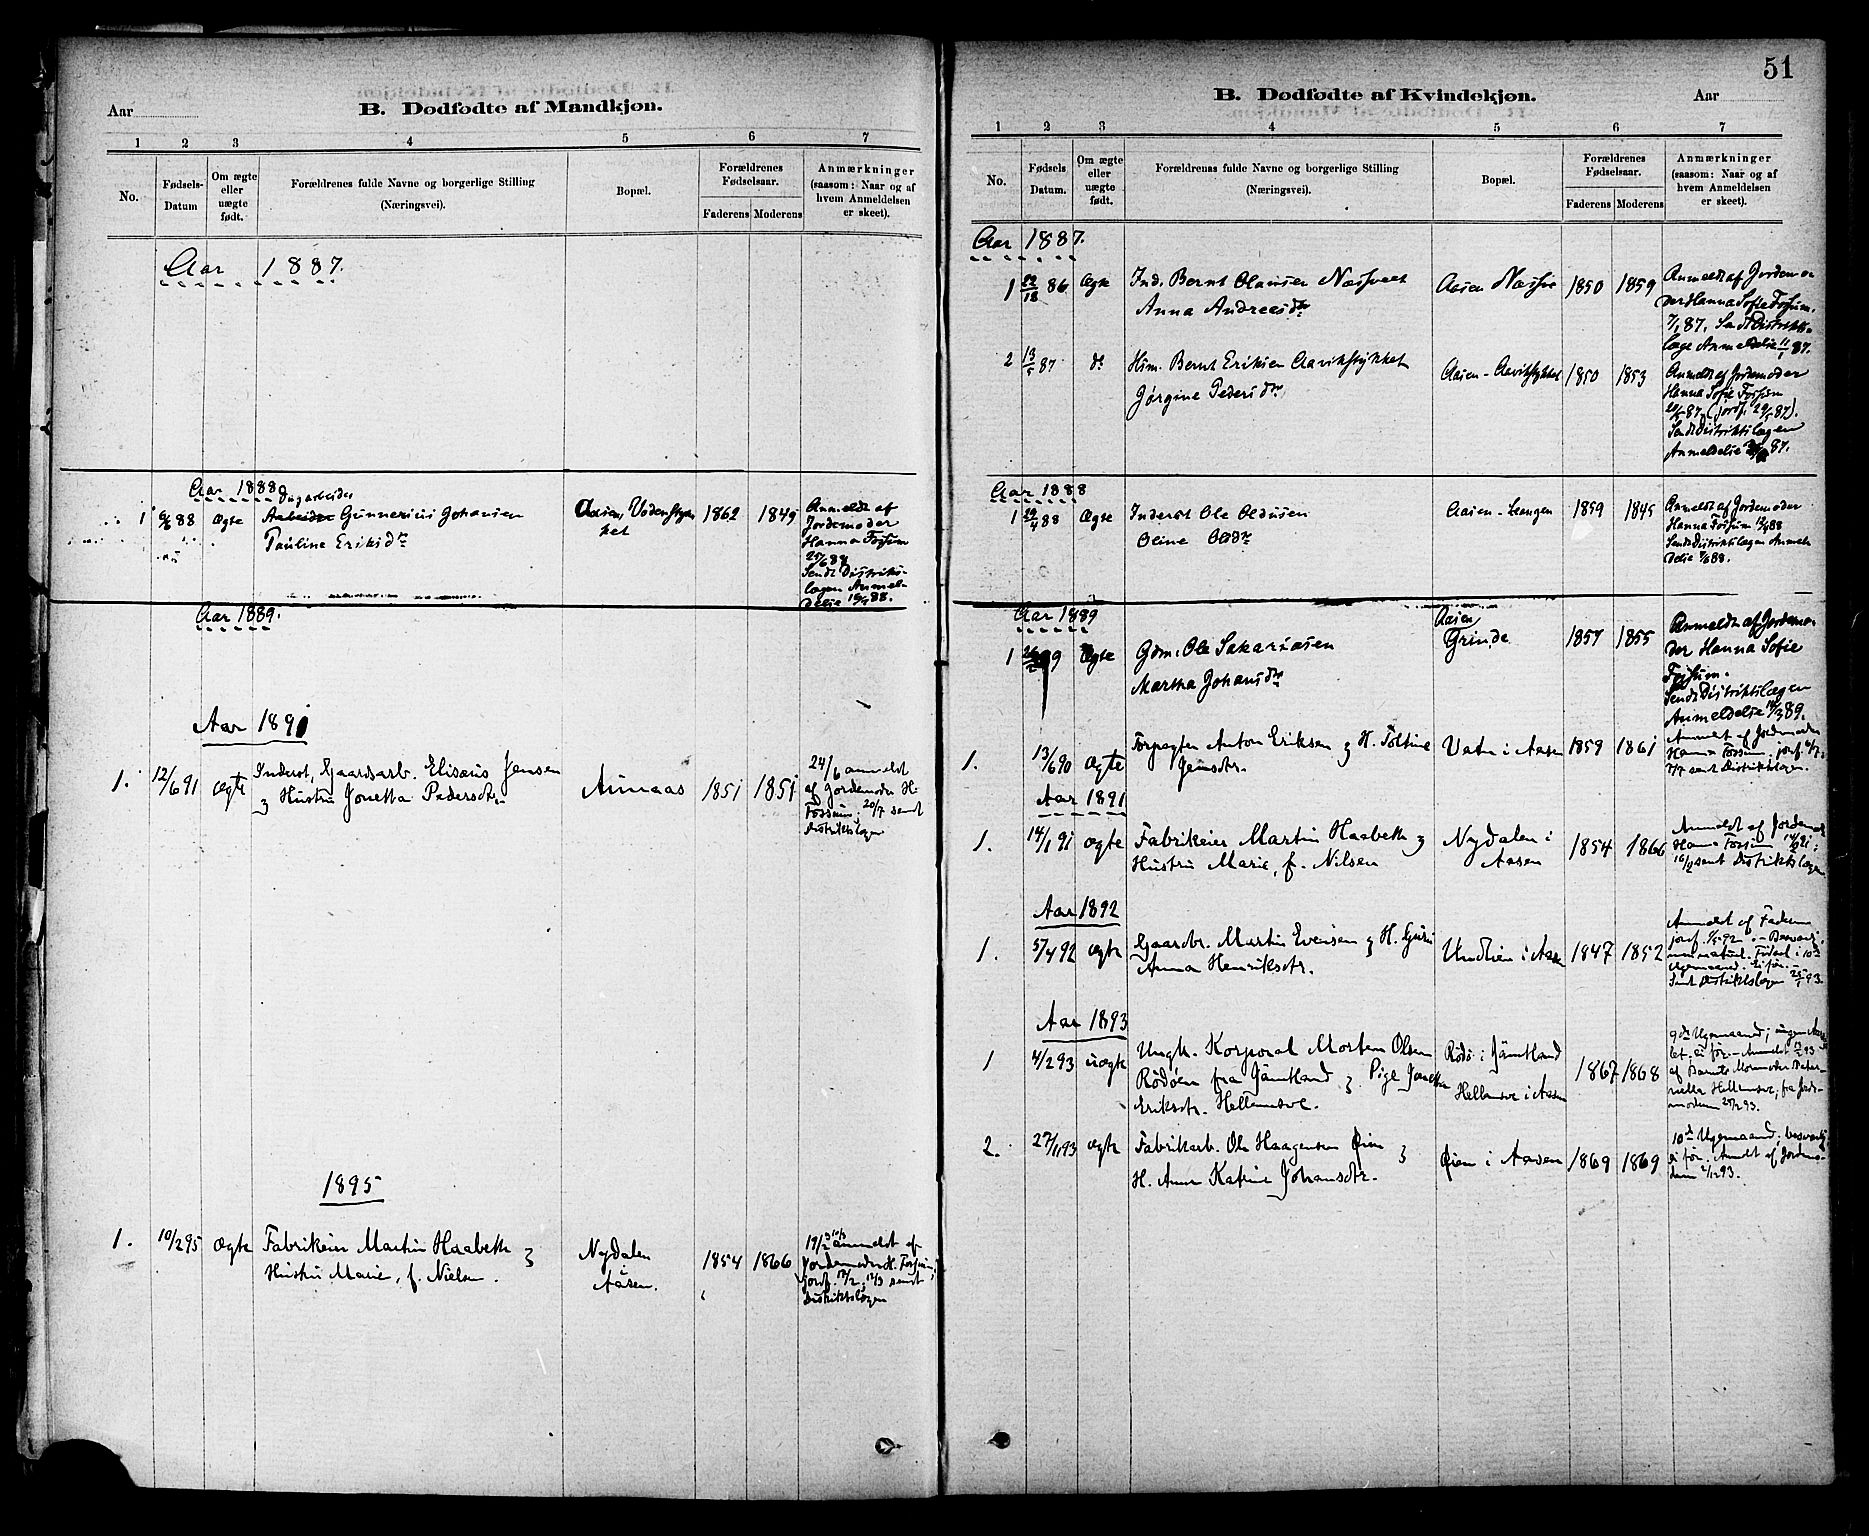 Aar
B. Dødfødte af Mandkjøn.
1 2 3 4 5 6 7
No.
Fødsels-
Datum
Om ægte
eller
uægte
født.
Forældrenes fulde Navne og borgerlige Stilling
(Næringsvei).
Bopæl.
Forældrenes
Fødselsaar.
Faderens Moderens
Anmærkninger
(saasom: Naar og af
hvem Anmeldelsen
er skeet).
Aar 1887.
Aar 1888
Dagarbeider
1 6/6 88 Ægte Arbeider Gunnerius Johansen
Pauline Eriksdr
Aasen, Vodenstyk
ket
1862 1849
Anmeldt af
Jordemoder
Hanna Fossum
25/6 88
Sendt Distrikts-
lægen Anmel-
delse 88.
Aar 1889.
Aar 1891
1. 12/6 91 ægte Inderst, Gaardsarb. Elisæus Jensen
& Hustru Jonetta Pedersdtr.
Aunaas 1851 1851
24/6 anmeldt
af Jordemoder H.
Fossum; 20/7 sendt
Distriktslægen
1895
1. 10/2 95 Ægte Fabrikeier Martin Haabeth &
Hustru Marie, f. Nielsen.
Nydalen
i
Aasen.
1854 1866
19/2 anmeldt af
Jordemoder H. Fossum;
jordf. 17/2; 12/3 sendt
Distriktslægen
51
B. Dødfødte af Kvindekjøn.
Aar
1 2 3 4 5 6 7
No.
Fødsels
Datum.
Om ægte
eller
uægte
født.
Forældrenas fulde Navne og borgerlige Stilling
(Næringsvei).
Bopæl.
Forældrenes
Fødselsaar.
Faderens Moderens
Anmærkninger
(saasom: Naar og af
hvem Anmeldelsen
er skeet).
Aar 1887.
1 22/12 86 Ægte Ind. Bernt Olausen Næssvet
Anna Andreasdr
Aasen Næsve 1850 1859
Anmeldt af Jordemo
der Hanna Sofie Fossum.
7/1 87. Sendt Distrikts-
læge Anmeldelse 11/1 87.
2 13/5 87 do Hsm. Bernt Eriksen Aavikstykket
Jørgine Pedersdr
Aasen-Aavikstykket 1850 1853
Anmeldt af Jordemoder
Hanna Sofie Fossum
87 (jordf. 29/5 87).
Sendt Distriktslægen
Anmeldelse 87.
Aar 1888
1 29/4 88 Ægte Inderst Ole Olausen
Oline Olsdr
Aasen-Langen 1859 1845
Anmeldt af Jordemoder
Hanna Fossum 88
Sendt Distriktslægen Anmel
delse 88.
Aar 1889
1 Ægte Gdm. Ole Sakariasen
Martha Johansdr
Aasen
Grinde
1857 1855
Anmeldt af Jordemo-
der Hanna Sofie
Fossum.
Sendt Distriktslægen
Anmeldelse 89.
1. 13/6 90 Ægte Forpagter Anton Eriksen & H. Toltine
Jensdtr.
Vatn i Aasen 1859 1861
Anmeldt af Jordemoder
Hanna Fossum, jordf.
7/7 sendt Distriktslægen.
Aar 1891
1. 14/1 91 ægte Fabrikeier Martin Haabeth &
Hustru Marie, f. Nilsen
Nydalen i
Aasen
1854 1866
Anmeldt af Jordemoder
Hanna Fossum 91;
16/2 sendt Distriktslægen
Aar 1892
1. 5/4 92 ægte Gaardbr. Martin Evensen & H. Guru
Anna Henriksdtr.
Undlien i Aasen 1847 1852
Anmeldt af Faderen
jordf. 92.
Ugemaand. Ei før. –
Sendt Distriktslægen 93.
Aar 1893
1 4/2 93 uægte Ungk. Korporal Morten Olsen
Rödöen fra Jämtland & Pige Jonetta
Eriksdtr. Hellemsve.
Rödö i Jämtland
Hellemsve i Aasen
1867 1868
9de Ugemaand;
ei før – Anmeldt 93
af Barnets Mormoder
Hellemsve, fra Jorde-
moderen 93.
2. 27/11 93 ægte Fabrikarb. Ole Haagensen Øien &
H. Anne Katrine Johansdtr.
Øien i Aasen 1869 1869
10de Ugemaand;
ei før. Anmeldt af Jordemo-
deren 93.